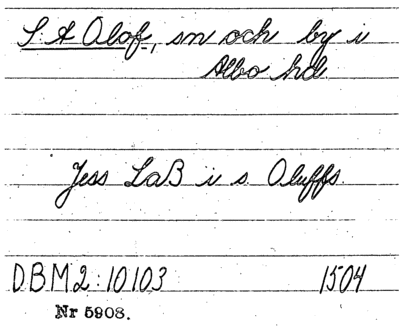 S. A Olof, sn och by i
Albo hd
Jess LaB i s. Oluffs.
DBM2:10103 1504
Nr 5908.